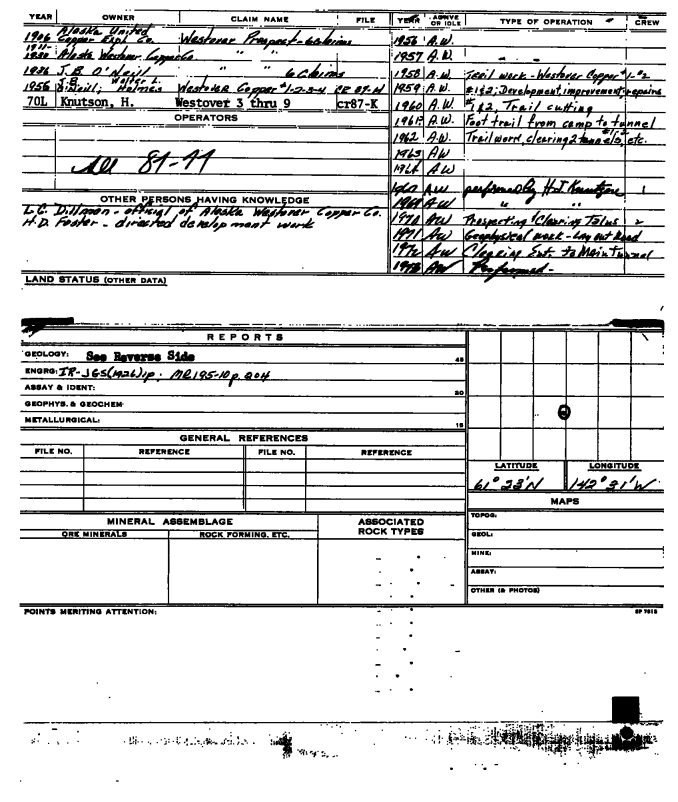 YEAR OWNER CLAIM NAME FILE YEAR ACTIVE OR IDLE TYPE OF OPERATION CREW
1906 Alaska United Copper Expl. Co. Westover Prospect - 6 claims 1956 A.W.
1911-1930 Alaska Westover Copper Co " " 1957 A.W. " "
1936 J.B. O'Neill " " 6 claims 1958 A.W. Trail work - Westover Copper #1-#2
1956 J.B. O'Neill; Walter L. Holmes Westover Copper #1-2-3-4 CR 87-H 1959 A.W. #1 & 2; Development, improvement, repairs
70L Knutson, H. Westover 3 thru 9 cr87-K 1960 A.W. #1 & 2, Trail cutting
OPERATORS 1961 A.W. Foot trail from camp to tunnel
1962 A.W. Trail work, clearing 2 tunnels, etc.
1963 AW
1964 AW
AW performed by H.J. Knutson 1
OTHER PERSONS HAVING KNOWLEDGE AW " "
L.C. Dillman - official of Alaska Westover Copper Co. 1970 AW Prospecting & Clearing Talus 2
H.D. Foster - directed development work 1971 AW Geophysical work - Lay out Road
1972 AW Clearing Ent. to Main Tunnel
AW Performed -
LAND STATUS (OTHER DATA)
REPORTS
GEOLOGY: See Reverse Side 45
ENGRG: IR-JGS(1926)1p. MR195-10 p. 204
ASSAY & IDENT: 20
GEOPHYS. & GEOCHEM
METALLURGICAL: 15
GENERAL REFERENCES
FILE NO. REFERENCE FILE NO. REFERENCE
LATITUDE LONGITUDE
61° 23'N 142° 31'W
MAPS
MINERAL ASSEMBLAGE ASSOCIATED ROCK TYPES TOPOG:
ORE MINERALS ROCK FORMING, ETC. GEOL:
MINE:
ASSAY:
OTHER (& PHOTOS)
POINTS MERITING ATTENTION: